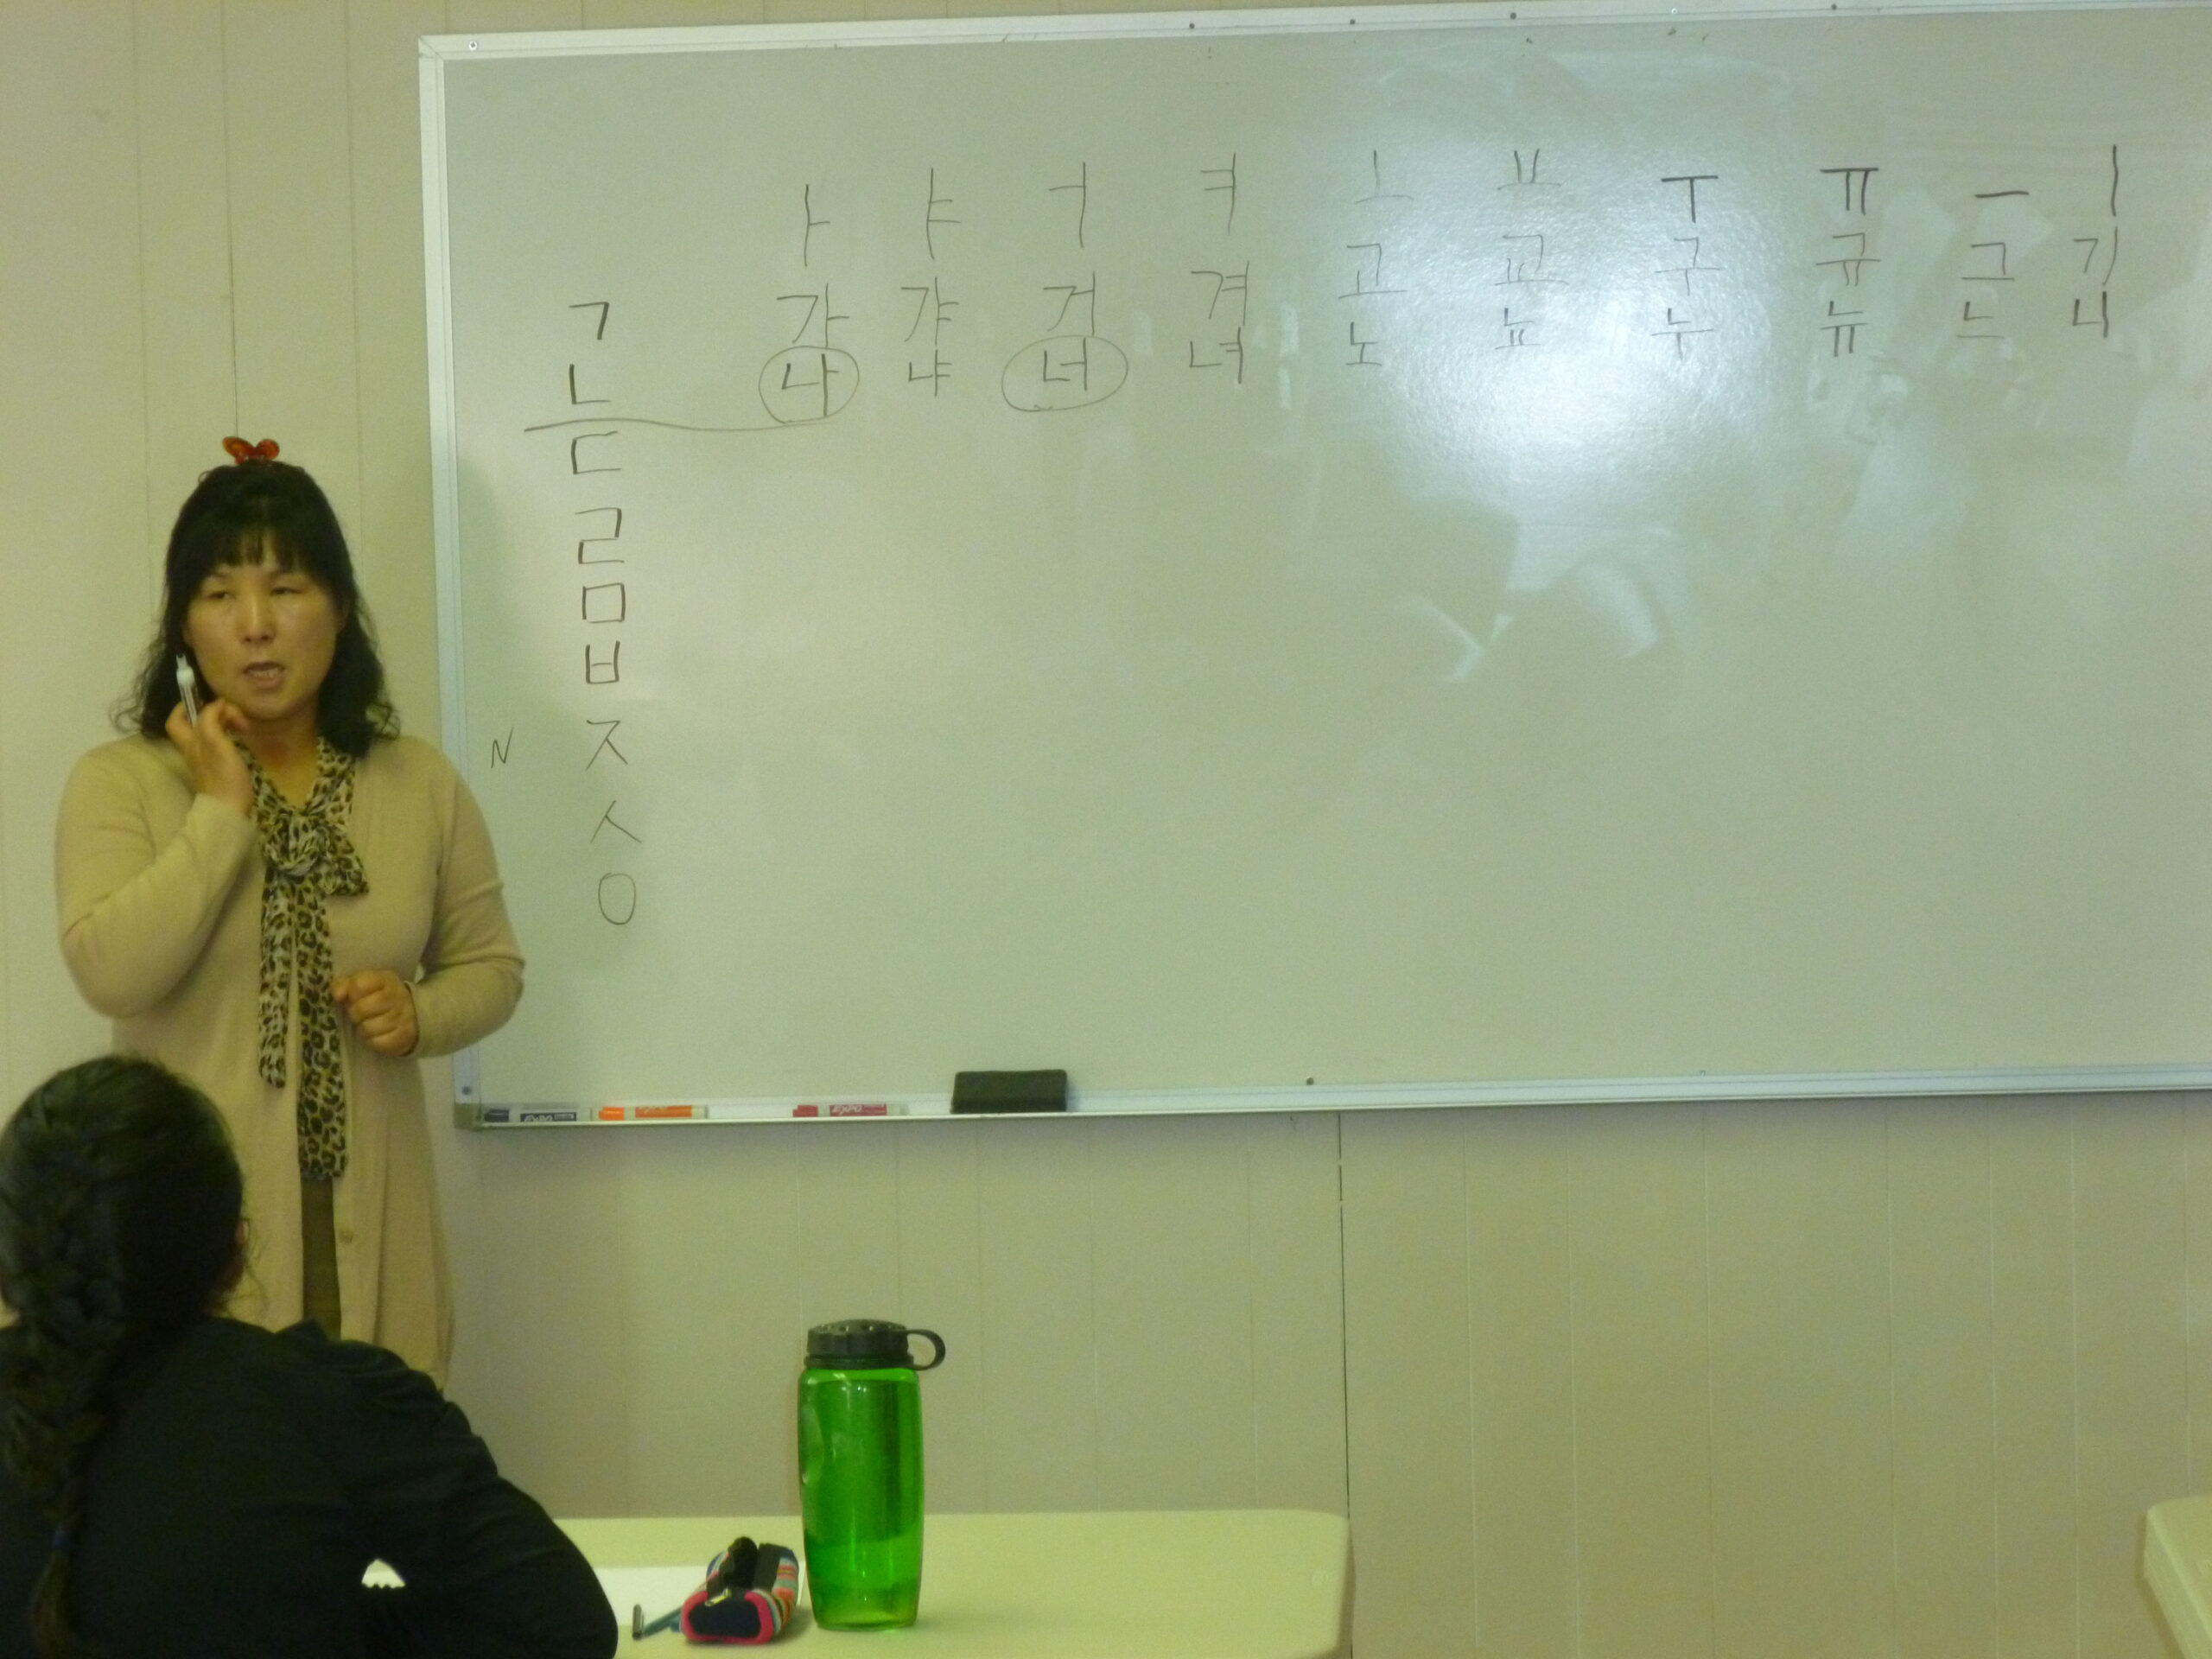 ㅏ ㅑ ㅓ ㅕ ㅗ ㅛ ㅜ ㅠ ㅡ ㅣ
ㄱ 가 갸 거 겨 고 교 구 규 그 기
ㄴ 나 냐 너 녀 노 뇨 누 뉴 느 니
ㄷ
ㄹ
ㅁ
ㅂ
N ㅈ
ㅅ
ㅇ
EXPO EXPO EXPO